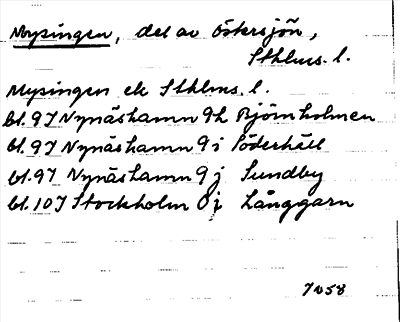 Mysingen, del av Östersjön,
Sthlms. l.
Mysingen ek Sthlms. l.
bl. 9I Nynäshamn 9h Björnholmen
bl. 9I Nynäshamn 9i Söderhäll
bl. 9I Nynäshamn 9j Sundby
bl. 10I Stockholm 0j Långgarn